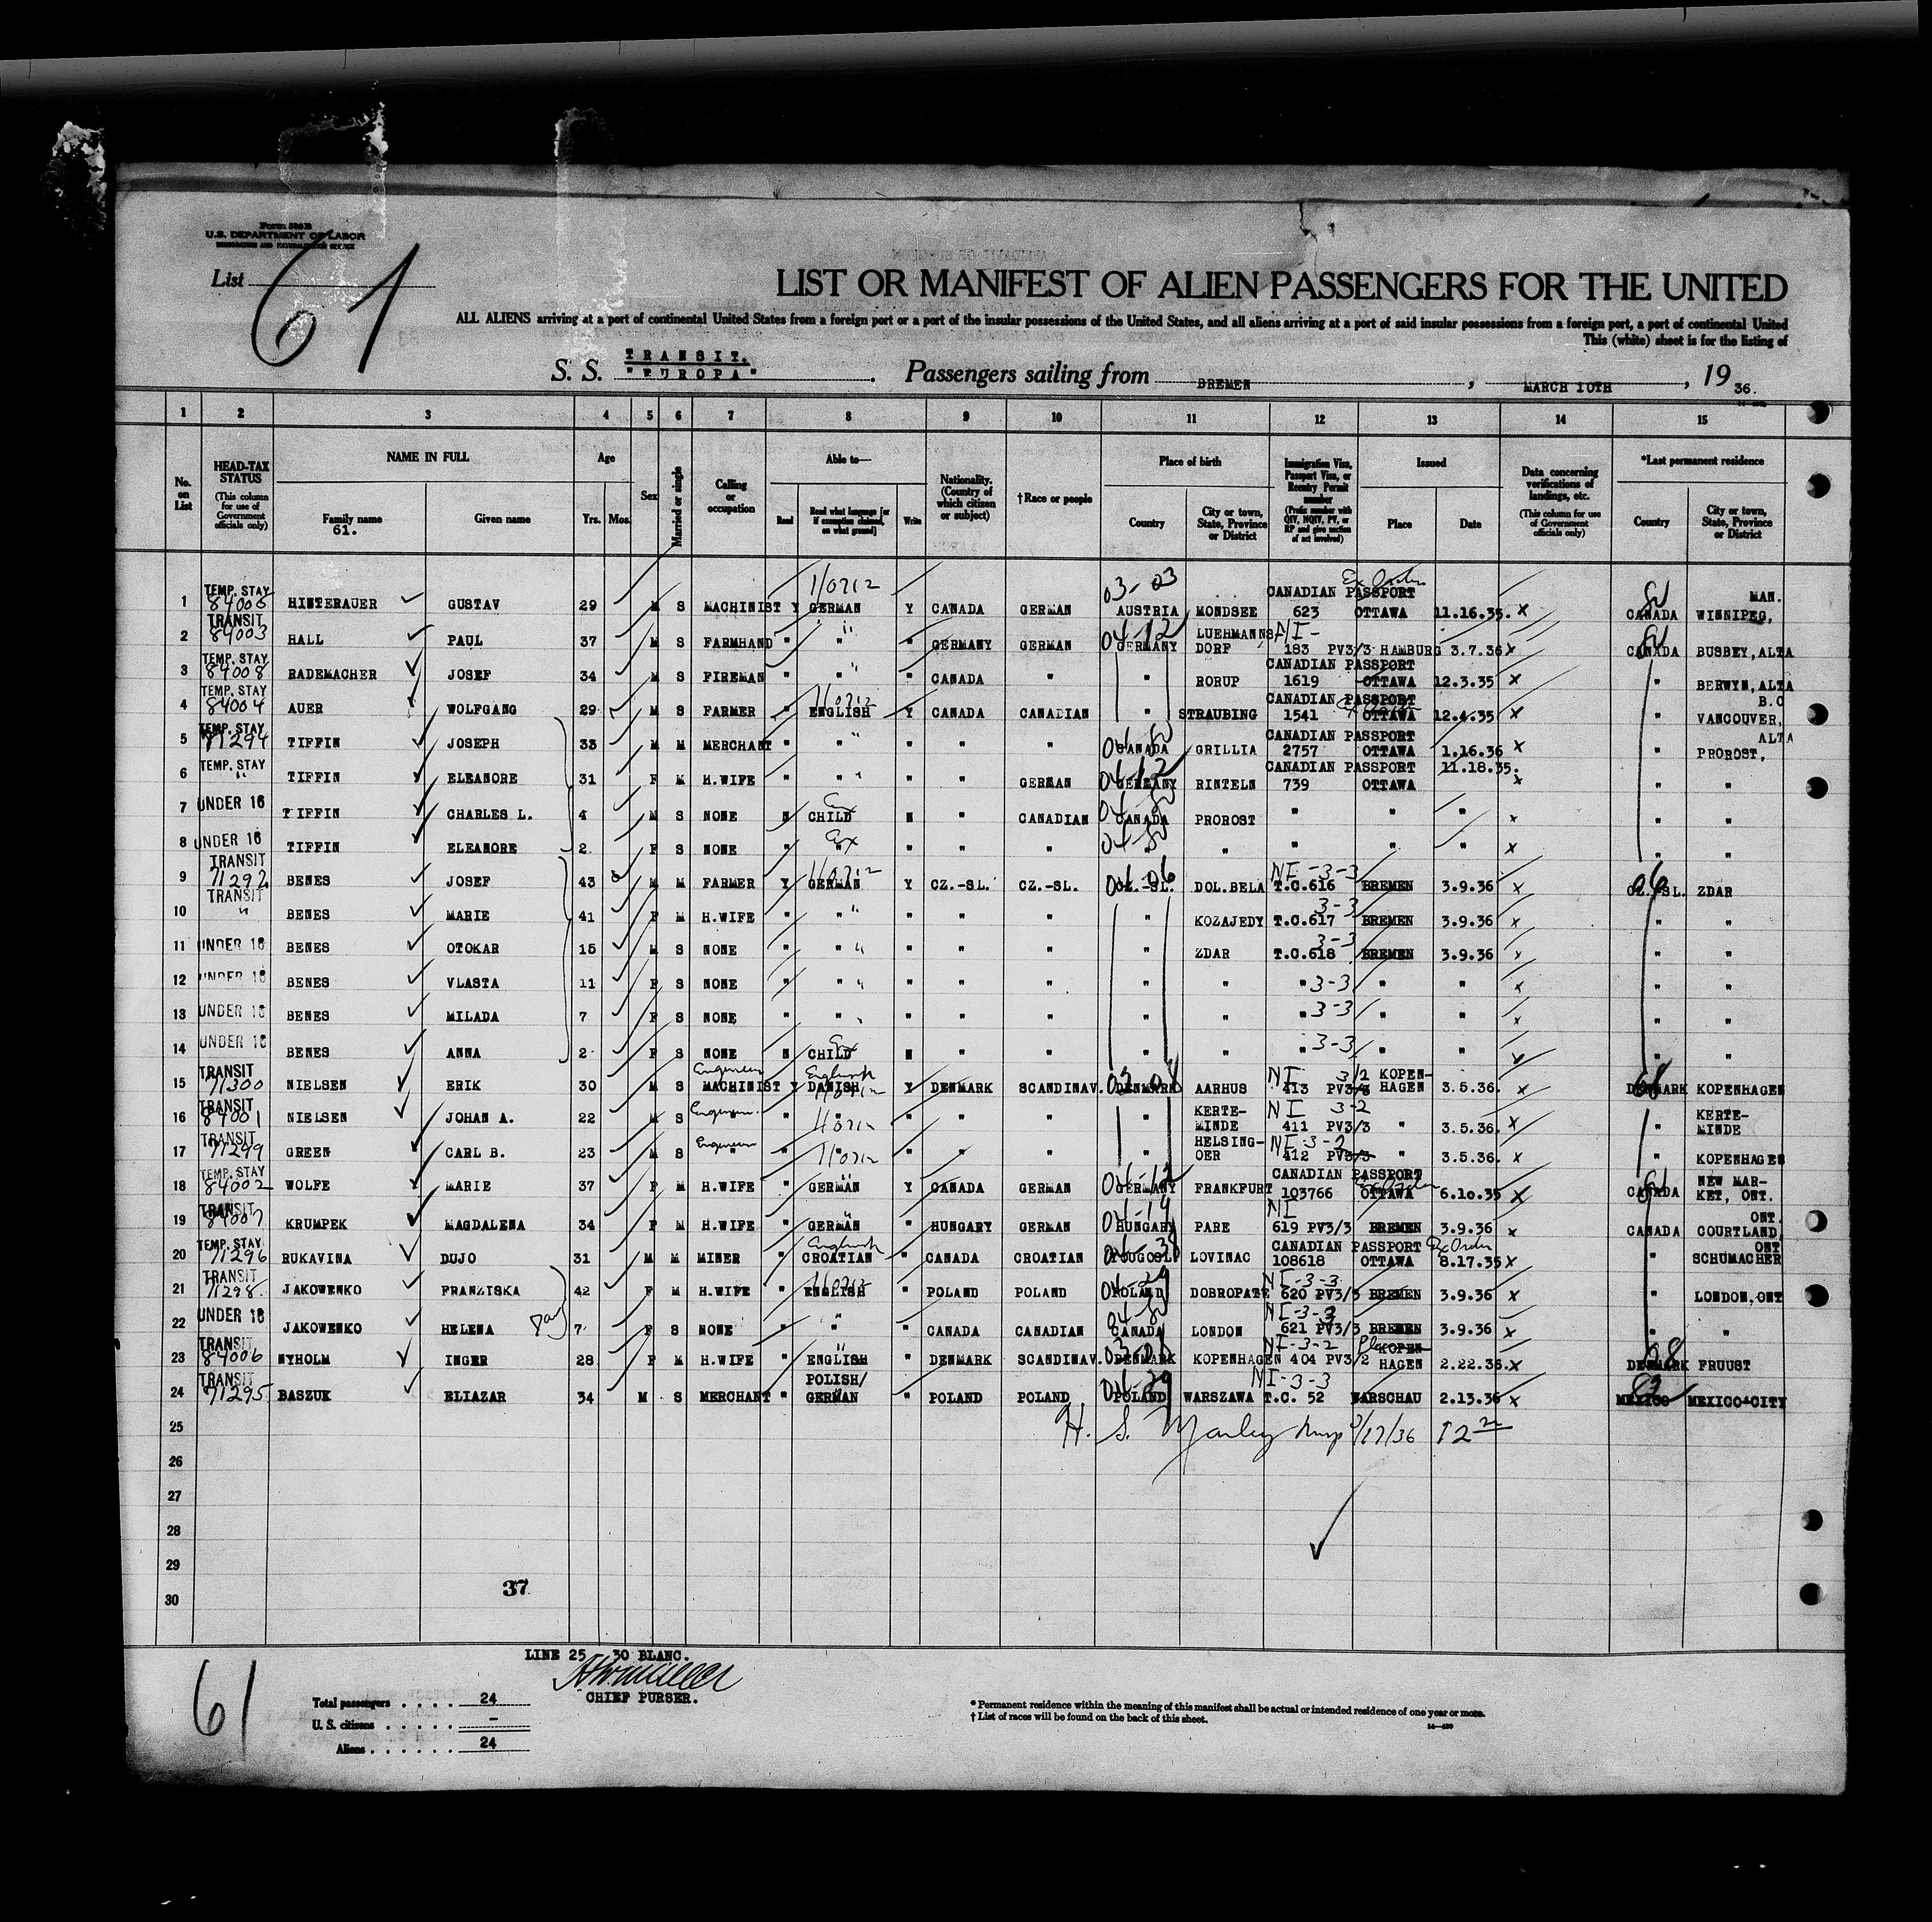 Form 500 B
U.S. DEPARTMENT OF LABOR
List 61
LIST OR MANIFEST OF ALIEN PASSENGERS FOR THE UNITED
ALL ALIENS arriving at a port of continental United States from a foreign port or a port of the insular possessions of the United States, and all aliens arriving at a port of said insular possessions from a foreign port, a port of continental United
This (white) sheet is for the listing of
TRANSIT.
S. S. "EUROPA". Passengers sailing from BREMEN, MARCH 10TH, 19 36.
1 2 3 4 5 6 7 8 9 10 11 12 13 14 15
No. on List
HEAD-TAX STATUS (This column for use of Government officials only)
NAME IN FULL Family name 61. Given name
Age Yrs. Mos.
Sex
Married or single
Calling or occupation
Able to— Read Read what language [or if exemption claimed, on what ground] Write
Nationality. (Country of which citizen or subject)
†Race or people
Place of birth Country City or town, State, Province or District
Immigration Visa, Passport Visa, or Reentry Permit number (Prefix number with QIV, NQIV, PV, or RP and give section of act involved)
Issued Place Date
Data concerning verifications of landings, etc. (This column for use of Government officials only)
*Last permanent residence Country City or town, State, Province or District
1 TEMP. STAY 84005 HINTERAUER GUSTAV 29 M S MACHINIST Y GERMAN Y CANADA GERMAN 03-03 AUSTRIA MONDSEE CANADIAN PASSPORT 623 OTTAWA 11.16.35. X CANADA WINNIPEG, MAN.
2 TRANSIT 84003 HALL PAUL 37 M S FARMHAND " " " GERMANY GERMAN 04-12 GERMANY LUEHMANNSDORF NI- 183 PV3/3 HAMBURG 3.7.36 X CANADA BUSBEY, ALTA
3 TEMP. STAY 84008 RADEMACHER JOSEF 34 M S FIREMAN " " " CANADA " " RORUP CANADIAN PASSPORT 1619 OTTAWA 12.3.35 X " BERWYN, ALTA
4 TEMP. STAY 84004 AUER WOLFGANG 29 M S FARMER " ENGLISH Y CANADA CANADIAN " STRAUBING CANADIAN PASSPORT 1541 OTTAWA 12.4.35 X " VANCOUVER, B.C
5 TEMP. STAY 71294 TIFFIN JOSEPH 33 M M MERCHANT " " " " " CANADA GRILLIA CANADIAN PASSPORT 2757 OTTAWA 1.16.36 X " PROROST, ALTA
6 TEMP. STAY " TIFFIN ELEANORE 31 F M H.WIFE " " " " GERMAN 04-12 GERMANY RINTELN CANADIAN PASSPORT 739 OTTAWA 11.18.35. X " "
7 UNDER 16 TIFFIN CHARLES L. 4 M S NONE N CHILD N " CANADIAN CANADA PROROST " " " X " "
8 UNDER 16 TIFFIN ELEANORE 2 F S NONE " " " " " " " " " " X " "
9 TRANSIT 71292 BENES JOSEF 43 M M FARMER Y GERMAN Y CZ.-SL. CZ.-SL. CZ.-SL. DOL.BELA NI-3-3 T.C.616 BREMEN 3.9.36 X CZ.-SL. ZDAR
10 TRANSIT " BENES MARIE 41 F M H.WIFE " " " " " " KOZAJEDY 3-3 T.C.617 BREMEN 3.9.36 X " "
11 UNDER 16 BENES OTOKAR 15 M S NONE " " " " " " ZDAR 3-3 T.C.618 BREMEN 3.9.36 X " "
12 UNDER 16 BENES VLASTA 11 F S NONE " " " " " " " " 3-3 " " X " "
13 UNDER 16 BENES MILADA 7 F S NONE " " " " " " " " 3-3 " " X " "
14 UNDER 16 BENES ANNA 2 F S NONE N CHILD N " " " " " 3-3 " " X " "
15 TRANSIT 71300 NIELSEN ERIK 30 M S Engineer MACHINIST Y English DANISH Y DENMARK SCANDINAV. DENMARK AARHUS NI 3/2 413 PV3/3 KOPENHAGEN 3.5.36. X DENMARK KOPENHAGEN
16 TRANSIT 84001 NIELSEN JOHAN A. 22 M S Engineer " " " " " " " KERTEMINDE NI 3-2 411 PV3/3 " 3.5.36. X " KERTEMINDE
17 TRANSIT 71299 GREEN CARL B. 23 M S Engineer " " " " " " " HELSINGOER NI-3-2 412 PV3/3 " 3.5.36. X " KOPENHAGEN
18 TEMP. STAY 84002 WOLFE MARIE 37 F M H.WIFE " GERMAN Y CANADA GERMAN 04-12 GERMANY FRANKFURT CANADIAN PASSPORT 103766 OTTAWA 6.10.35 X CANADA NEW MARKET, ONT.
19 TRANSIT 84007 KRUMPEK MAGDALENA 34 F M H.WIFE " GERMAN " HUNGARY GERMAN 04-19 HUNGARY PARE NI 619 PV3/3 BREMEN 3.9.36 X CANADA COURTLAND, ONT.
20 TEMP. STAY 71296 RUKAVINA DUJO 31 M M MINER " English CROATIAN " CANADA CROATIAN YOUGOSL. LOVINAC CANADIAN PASSPORT 108618 OTTAWA Ex Order 8.17.35 X " SCHUMACHER ONT
21 TRANSIT 71298. JAKOWENKO FRANZISKA 42 F M H.WIFE " ENGLISH " POLAND POLAND 04-29 POLAND DOBROPATE NI-3-3 620 PV3/3 BREMEN 3.9.36 X " LONDON, ONT
22 UNDER 16 JAKOWENKO HELENA 7 F S NONE " " " CANADA CANADIAN CANADA LONDON NI-3-3 621 PV3/3 BREMEN 3.9.36 X " "
23 TRANSIT 84006 NYHOLM INGER 28 F M H.WIFE " ENGLISH " DENMARK SCANDINAV. DENMARK KOPENHAGEN NI-3-2 404 PV3/2 KOPENHAGEN 2.22.36. X DENMARK FRUUST
24 TRANSIT 71295 BASZUK ELIAZAR 34 M S MERCHANT " POLISH/GERMAN " POLAND POLAND 04-29 POLAND WARSZAWA NI-3-3 T.C. 52 WARSCHAU 2.13.36 X MEXICO MEXICO-CITY
25 H. S. Manley Insp 3/17/36
26
27
28
29
30
37
LINE 25 30 BLANC.
CHIEF PURSER.
61
Total passengers . . . . 24
U. S. citizens . . . . . –
Aliens . . . . . . 24
* Permanent residence within the meaning of this manifest shall be actual or intended residence of one year or more.
† List of races will be found on the back of this sheet.